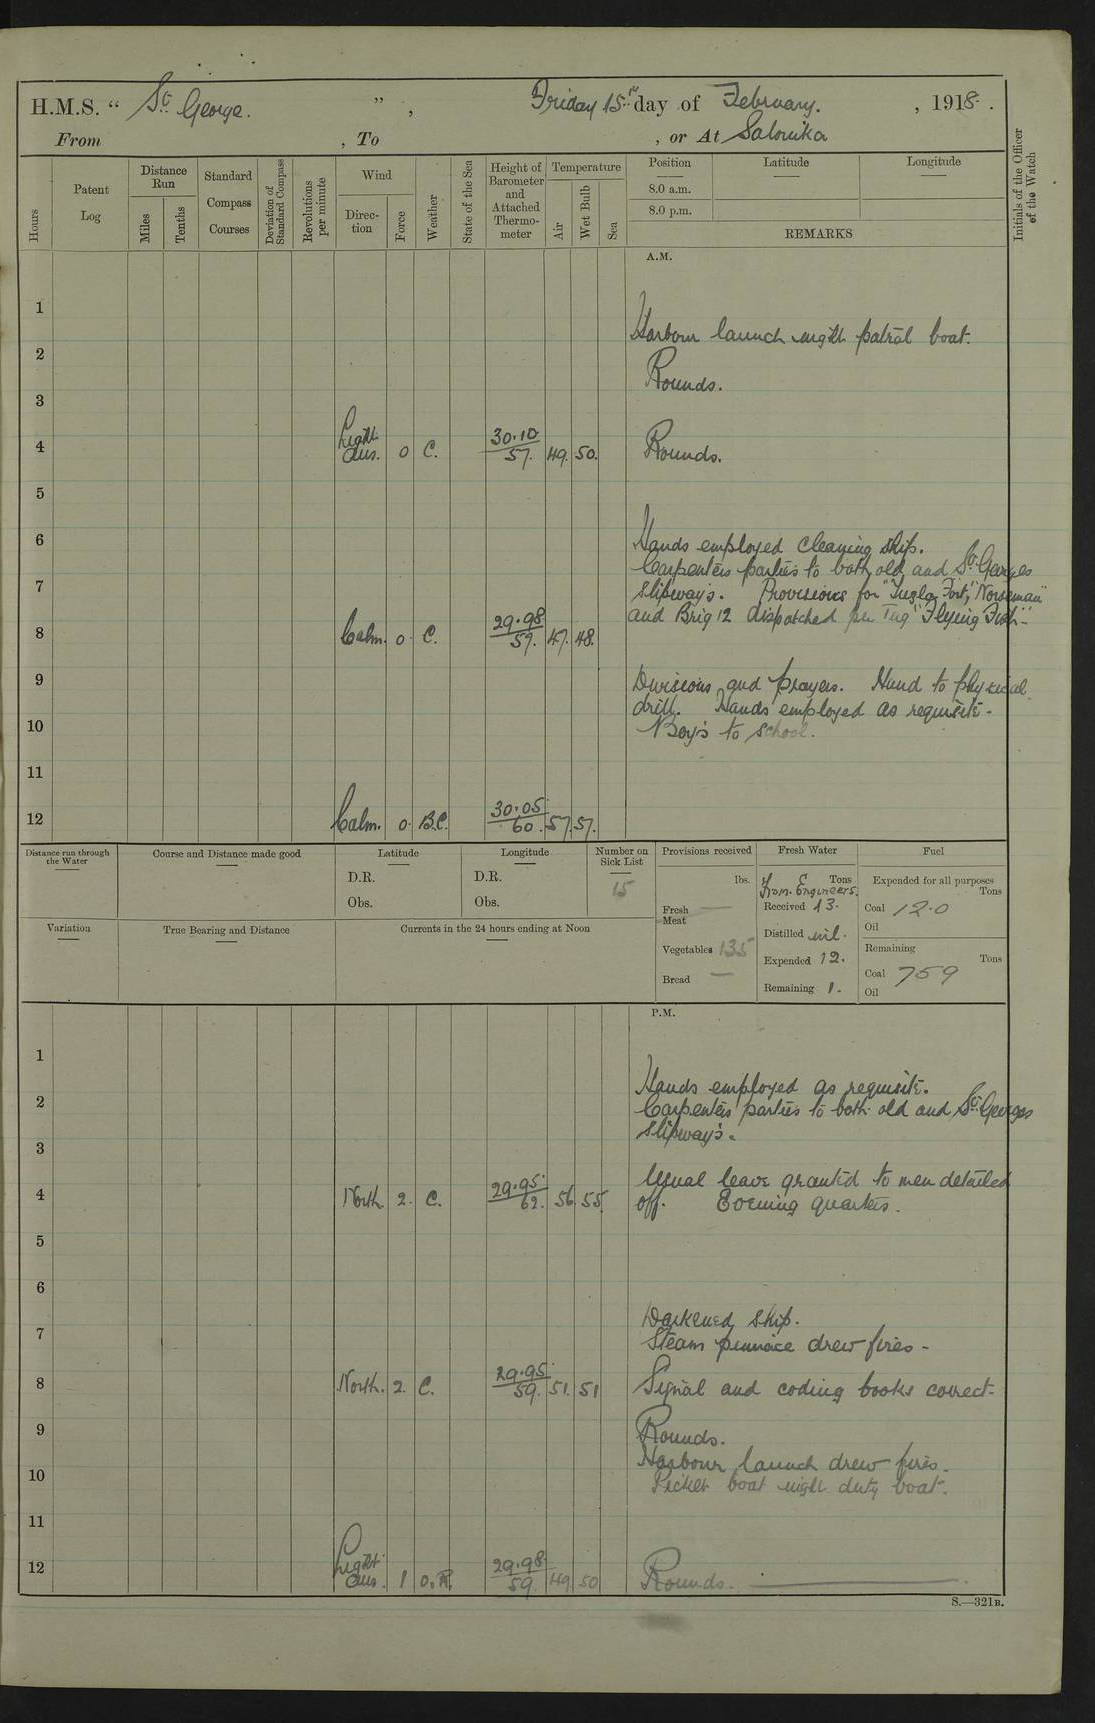 H.M.S. “ St George. ”, Friday 15th day of February. , 1918.
From , To , or At Salonika
Hours
Patent Log
Distance Run
Miles
Tenths
Standard Compass Courses
Deviation of Standard Compass
Revolutions per minute
Wind
Direction
Force
Weather
State of the Sea
Height of Barometer and Attached Thermometer
Temperature
Air
Wet Bulb
Sea
Position
Latitude
Longitude
8.0 a.m.
8.0 p.m.
REMARKS
Initials of the Officer of the Watch
A.M.
1
Harbour launch night patrol boat.
2
Rounds.
3
4 Light airs. 0 C. 30.10 57. 49. 50. Rounds.
5
6 Hands employed cleaning ship.
Carpenters parties to both old and St. Georges
7 slipway's. Provisions for "Tuzla Fort," "Norseman"
and Brig 12 dispatched per Tug "Flying Fish"-
8 Calm. 0. C. 29.98 57. 47. 48.
9 Divisions and prayers. Hand to physical
drill. Hands employed as requisite.
10 Boy's to school.
11
12 Calm. 0. B.C. 30.05 60. 57. 57.
Distance run through the Water
Course and Distance made good
Latitude
D.R.
Obs.
Longitude
D.R.
Obs.
Number on Sick List
15
Provisions received
lbs.
Fresh Meat —
Vegetables 135
Bread —
Fresh Water
Tons
From Engineers.
Received 13.
Distilled nil.
Expended 12.
Remaining 1.
Fuel
Expended for all purposes
Tons
Coal 12.0
Oil
Remaining
Tons
Coal 759
Oil
Variation
True Bearing and Distance
Currents in the 24 hours ending at Noon
P.M.
1
Hands employed as requisite.
2 Carpenters parties to both old and St. Georges
slipway's.
3
Usual leave granted to men detailed
4 North 2. C. 29.95. 62. 56. 55. off. Evening quarters.
5
6
Darkened ship.
7 Steam pinnace drew fires -
8 North. 2. C. 29.95. 59. 51. 51 Signal and coding books correct-
9 Rounds.
Harbour launch drew fires.
10 Picket boat night duty boat.
11
12 Light airs. 1 O.R. 29.98. 59. 49. 50 Rounds.
S.—321B.